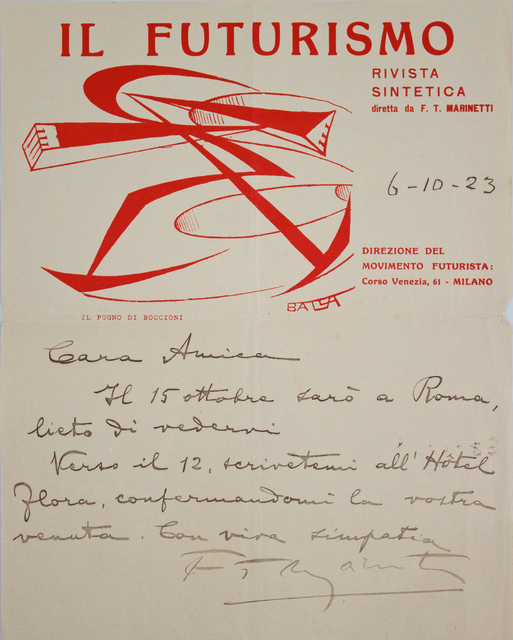 IL FUTURISMO
RIVISTA
SINTETICA
diretta da F. T. MARINETTI
6-10-23
DIREZIONE DEL
MOVIMENTO FUTURISTA:
Corso Venezia, 61 - MILANO
BALLA
IL PUGNO DI BOCCIONI
Cara Amica
Il 15 ottobre sarò a Roma,
lieto di vedervi
Verso il 12, scrivetemi all'Hôtel
Flora, confermandomi la vostra
venuta. Con viva simpatia
F T Marinetti